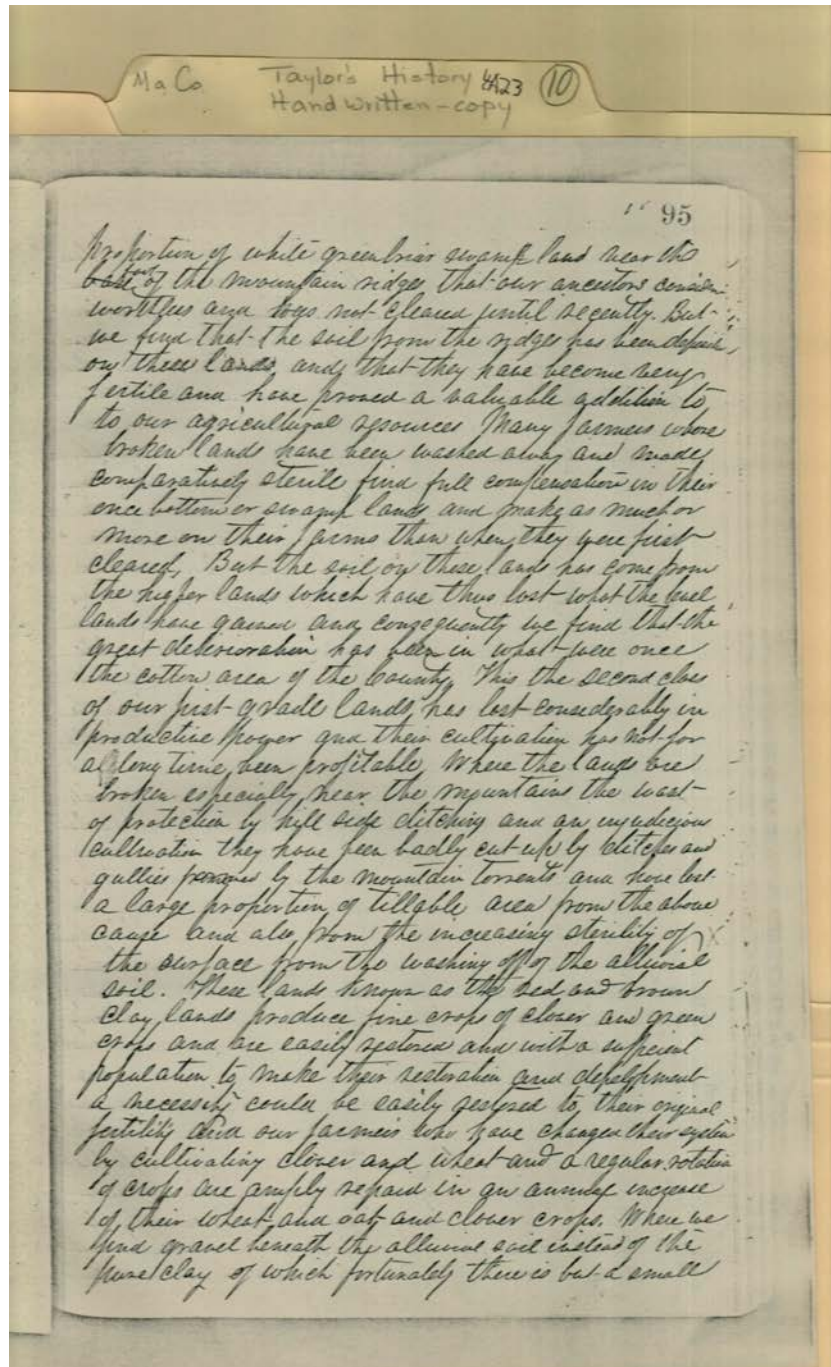 Ma Co Taylor's History 4A23 10
Hand written-copy
95
proportion of white greenbriar swamp land near the
of the mountain ridges that our ancestors
worthless and was not cleared until recently. But
we find that the soil from the ridges has been
on these lands, and that they have become very
fertile and have proved a valuable addition to
to our agricultural resources Many farmers whose
broken lands have been washed away and made
comparatively sterile find full compensation in their
once bottom or swamp lands and make as much or
more on their farms than when they were first
cleared, But the soil on these lands has come from
the higher lands which have thus lost what the level
lands have gained and consequently we find that the
great deterioration has been in what were once
the cotton area of the County. This the second class
of our first grade lands, has lost considerably in
productive power and their cultivation has not for
a long time, been profitable, Where the lands are
broken especially near the mountains the want
of protection by hill side ditching and an injudicious
cultivation they have been badly cut up by ditches and
gullies by the mountain torrents and have lost
a large proportion of tillable area from the above
cause and also from the increasing sterility of
the surface from the washing off of the alluvial
soil. These lands known as the red and brown
clay lands produce fine crops of clover and green
crops and are easily restored and with a sufficient
population to make their restoration and development
a necessity could be easily restored to their original
fertility and our farmers who have changed their system
by cultivating clover and wheat and a regular rotation
of crops are amply repaid in an annual increase
of their wheat and oat and clover crops. Where we
find gravel beneath the alluvial soil instead of the
pure clay of which fortunately there is but a small